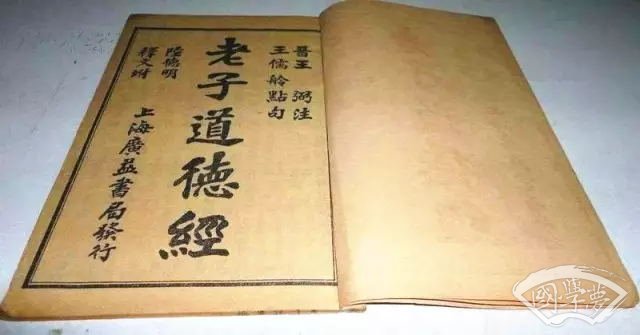 晉王 弼注
王儒舲點句
老子道德經
陸德明
釋文坿
上海廣益書局發行
國學夢